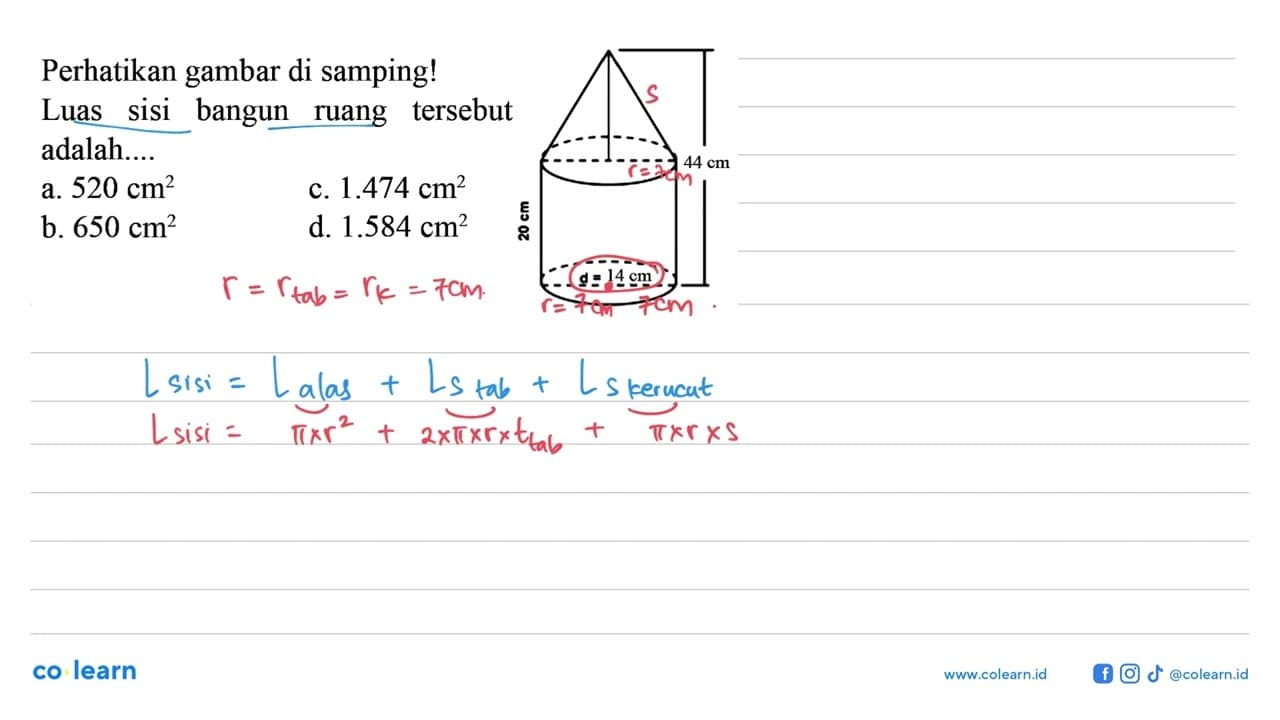 Perhatikan gambar di samping!
Luas sisi bangun ruang tersebut
adalah....
a. 520 cm² c. 1.474 cm²
b. 650 cm² d. 1.584 cm²
s
44 cm
r = 7cm
20 cm
d = 14 cm
r = 7cm 7cm
r = r tab = r k = 7cm.
L sisi = L alas + L s tab + L s kerucut
L sisi = π x r² + 2 x π x r x t tab + π x r x s
co learn
www.colearn.id
@colearn.id